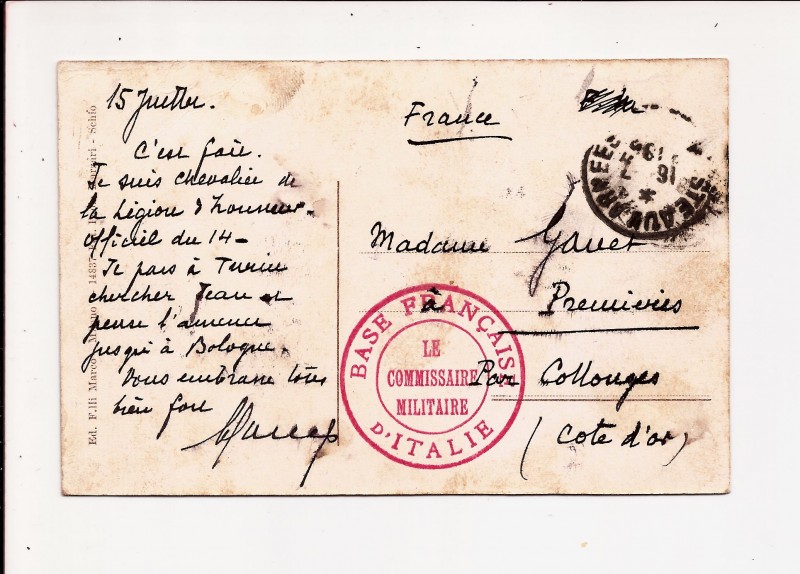 15 Juillet.
C'est fait.
Je suis chevalier de
la Légion d'honneur.
Officiel du 14-
Je pars à Turin
chercher Jean et
pense l'amener
jusqu'à Bologne.
Vous embrasse tous
bien fort
France
Madame
à Premières
Par Collonges
(Côte d'or)
BASE FRANÇAISE
D'ITALIE
LE
COMMISSAIRE
MILITAIRE
ARMEES
16
7
Ed. F.lli Marco
Schio